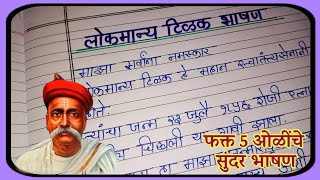 लोकमान्य टिळक भाषण
माझा सर्वांना नमस्कार
लोकमान्य टिळक हे महान स्वातंत्र्यसेनानी
होते.
त्यांचा जन्म २३ जुलै १८५६ रोजी
चिखली या गावी झाला.
माझा
फक्त 5 ओळींचे
सुंदर भाषण